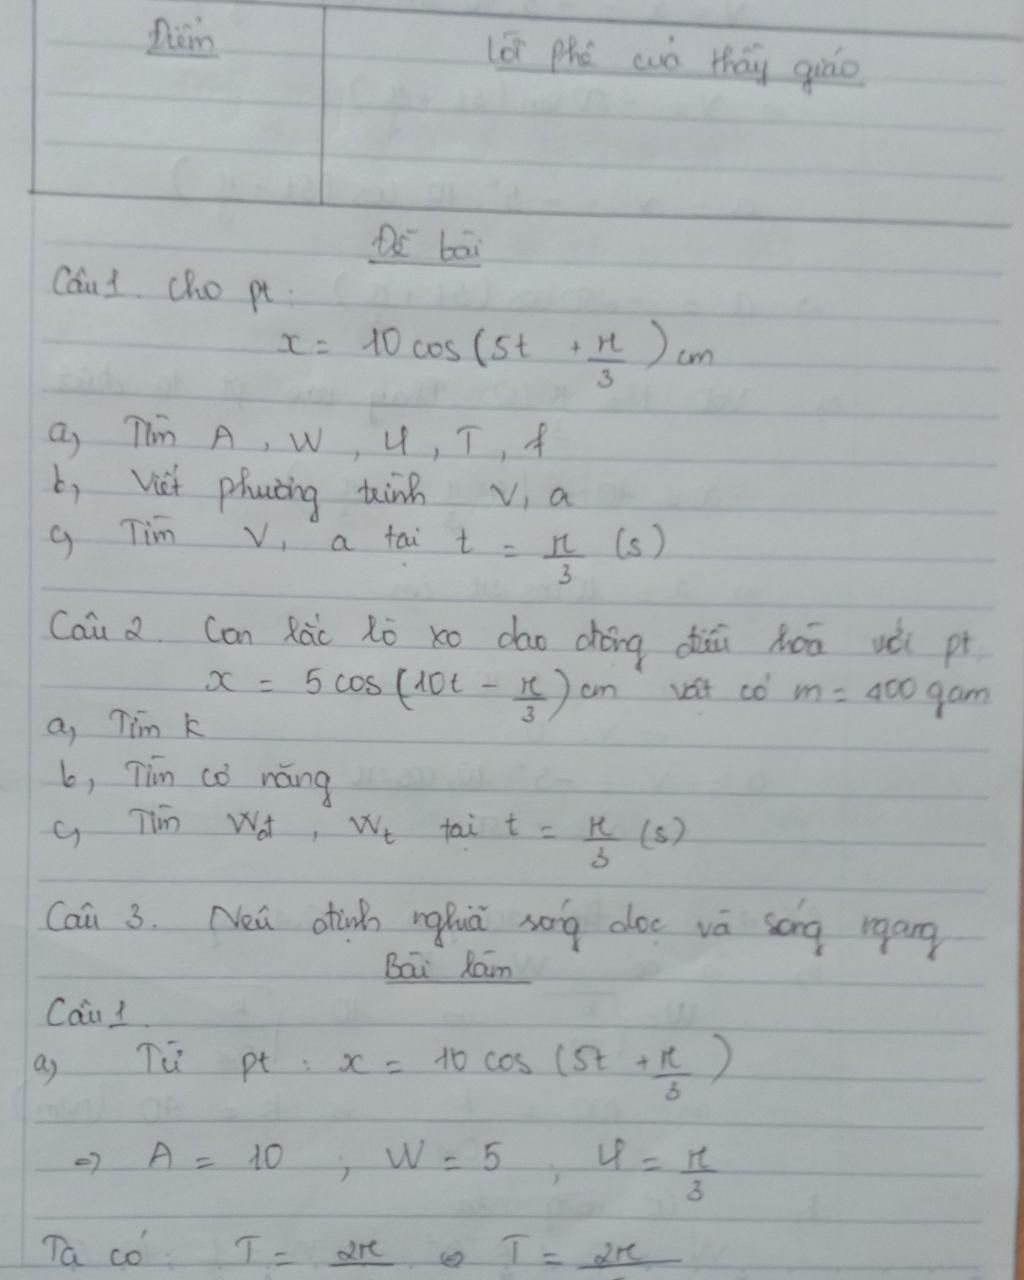 Điểm
Lời phê của thầy giáo
Đề bài
Câu 1. Cho pt:
x = 10 cos(5t + π/3) cm
a, Tìm A, W, φ, T, f
b, Viết phương trình v, a
c, Tìm V, a tại t = π/3 (s)
Câu 2. Con lắc lò xo dao động điều hoà với pt.
x = 5 cos(10t - π/3) cm vật có m = 400 gam
a, Tìm k
b, Tìm cơ năng
c, Tìm Wđ, Wt tại t = π/3 (s)
Câu 3. Nêu định nghĩa sóng dọc và sóng ngang
Bài làm
Câu 1.
a, Từ pt: x = 10 cos (5t + π/3)
=> A = 10 ; W = 5 , φ = π/3
Ta có: T = 2π ⇔ T = 2π